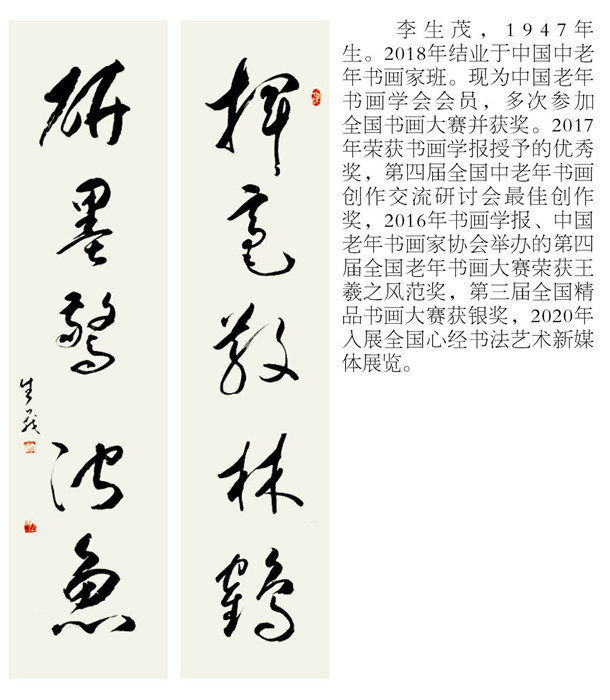 揮毫散林鶴
研墨驚池魚
生茂
李生茂，1947年
生。2018年结业于中国中老
年书画家班。现为中国老年
书画学会会员，多次参加
全国书画大赛并获奖。2017
年荣获书画学报授予的优秀
奖，第四届全国中老年书画
创作交流研讨会最佳创作
奖，2016年书画学报、中国
老年书画家协会举办的第四
届全国老年书画大赛荣获王
羲之风范奖，第三届全国精
品书画大赛获银奖，2020年
入展全国心经书法艺术新媒
体展览。